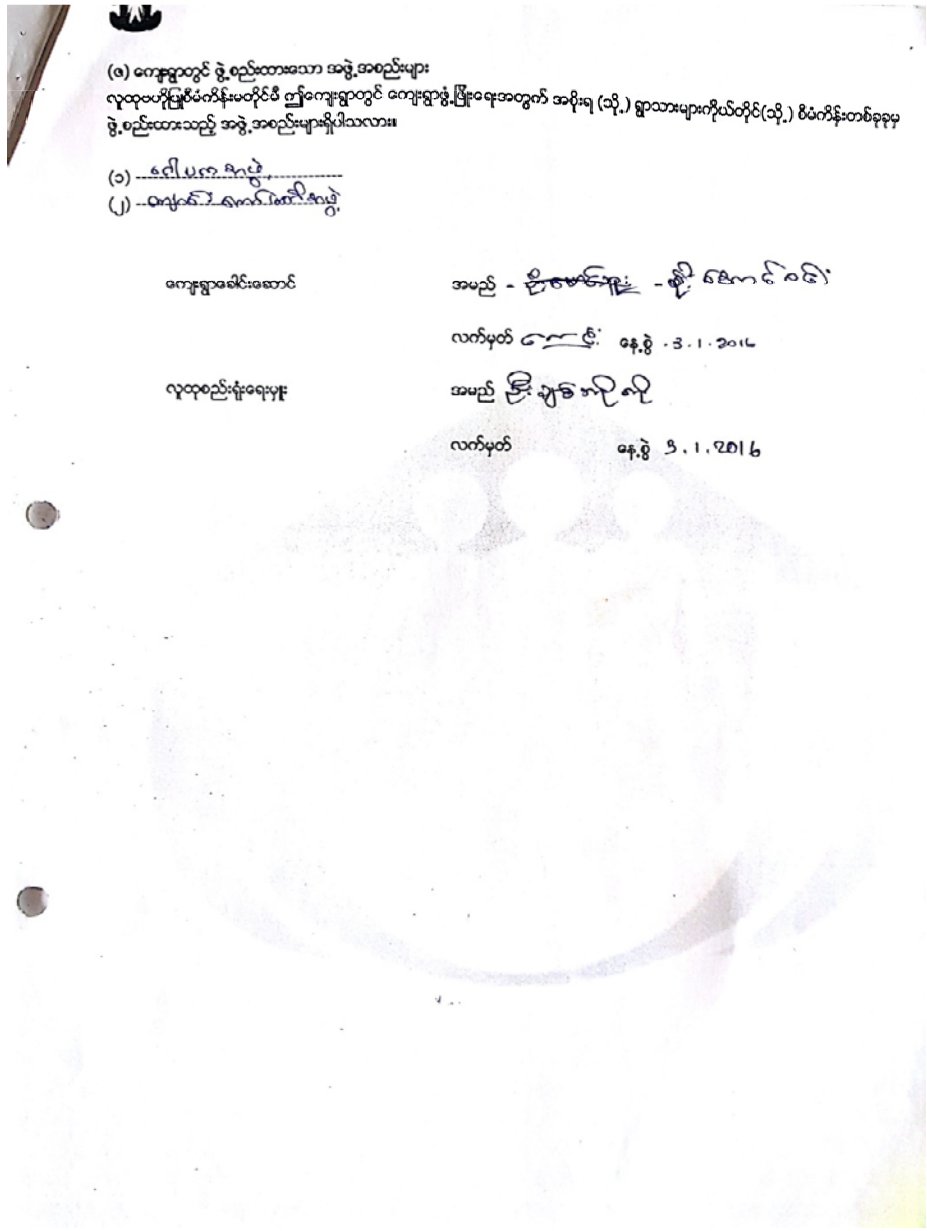 (ဇ) ကျေးရွာတွင် ဖွဲ့စည်းထားသော အဖွဲ့အစည်းများ
လူထုဗဟိုပြုစီမံကိန်းမတိုင်မီ ဤကျေးရွာတွင် ကျေးရွာဖွံ့ဖြိုးရေးအတွက် အစိုးရ (သို့) ရွာသားများကိုယ်တိုင်(သို့) စီမံကိန်းတစ်ခုခုမှ
ဖွဲ့စည်းထားသည့် အဖွဲ့အစည်းများရှိပါသလား။
(၁) အဖွဲ့
(၂) အဖွဲ့
ကျေးရွာခေါင်းဆောင် အမည် -
လက်မှတ် နေ့စွဲ . 3.1.2016
လူထုစည်းရုံးရေးမှူး အမည် ဦးချစ်
လက်မှတ် နေ့စွဲ 3.1.2016